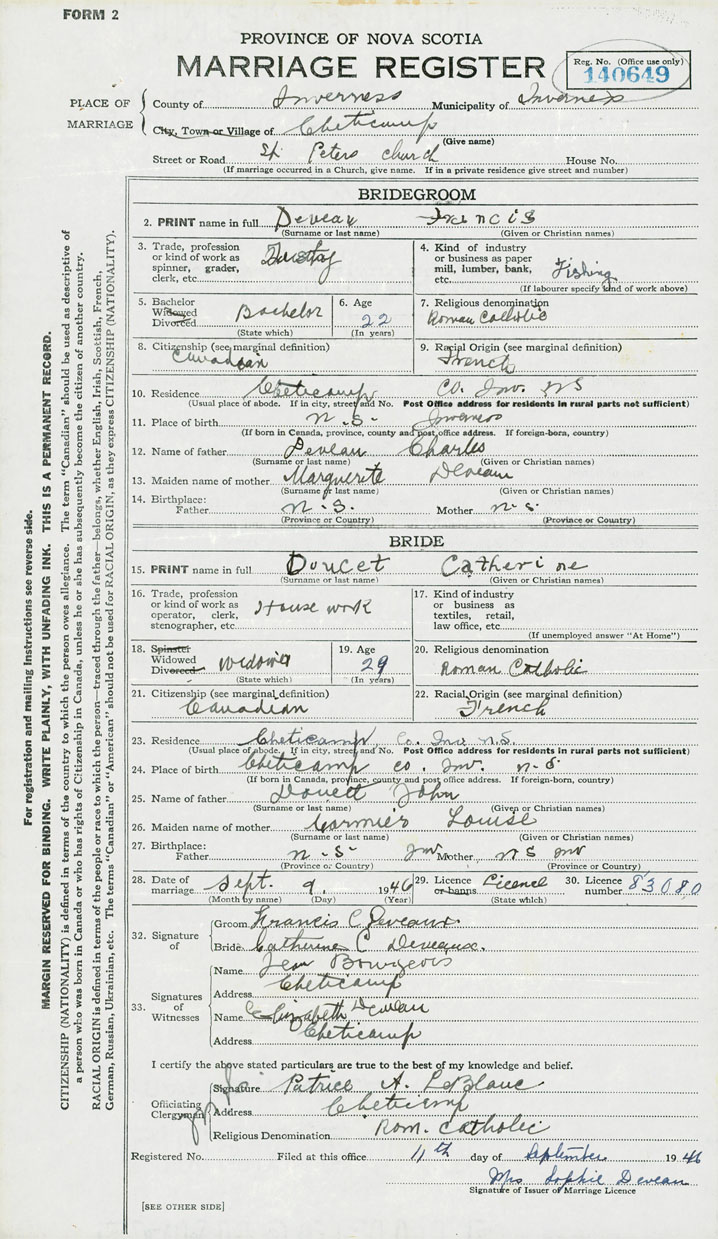 FORM 2
PROVINCE OF NOVA SCOTIA
MARRIAGE REGISTER
Reg. No. (Office use only)
140649
PLACE OF MARRIAGE
County of Inverness Municipality of Inverness
City, Town or Village of Cheticamp
(Give name)
Street or Road St. Peters church House No.
(If marriage occurred in a Church, give name. If in a private residence give street and number)
BRIDEGROOM
2. PRINT name in full Deveau Francis
(Surname or last name) (Given or Christian names)
3. Trade, profession or kind of work as spinner, grader, clerk, etc.
4. Kind of industry or business as paper mill, lumber, bank, etc. Fishing
(If labourer specify kind of work above)
5. Bachelor Widowed Divorced Bachelor
(State which)
6. Age 22
(In years)
7. Religious denomination
Roman Catholic
8. Citizenship (see marginal definition)
Canadian
9. Racial Origin (see marginal definition)
French
10. Residence Cheticamp Co. Inv. NS
(Usual place of abode. If in city, street and No. Post Office address for residents in rural parts not sufficient)
11. Place of birth N.S. Inverness
(If born in Canada, province, county and post office address. If foreign-born, country)
12. Name of father Deveau Charles
(Surname or last name) (Given or Christian names)
13. Maiden name of mother Marguerite Deveau
(Surname or last name) (Given or Christian names)
14. Birthplace: Father N.S. Mother N.S.
(Province or Country) (Province or Country)
BRIDE
15. PRINT name in full Doucet Catherine
(Surname or last name) (Given or Christian names)
16. Trade, profession or kind of work as operator, clerk, stenographer, etc. House work
17. Kind of industry or business as textiles, retail, law office, etc.
(If unemployed answer "At Home")
18. Spinster Widowed Divorced Widow
(State which)
19. Age 29
(In years)
20. Religious denomination
Roman Catholic
21. Citizenship (see marginal definition)
Canadian
22. Racial Origin (see marginal definition)
French
23. Residence Cheticamp, Co. Inv. N.S.
(Usual place of abode. If in city, street and No. Post Office address for residents in rural parts not sufficient)
24. Place of birth Cheticamp co. Inv. N.S.
(If born in Canada, province, county and post office address. If foreign-born, country)
25. Name of father John
(Surname or last name) (Given or Christian names)
26. Maiden name of mother Cormier Louise
(Surname or last name) (Given or Christian names)
27. Birthplace: Father N.S. Inv Mother N S Inv
(Province or Country) (Province or Country)
28. Date of marriage Sept. 9, 1946
(Month by name) (Day) (Year)
29. Licence or banns Licence
(State which)
30. Licence number 83080
32. Signature of
Groom Francis C Deveaux
Bride Catherine C Deveaux.
33. Signatures of Witnesses
Name Jean Bourgeois
Address Cheticamp
Name Elizabeth Deveau
Address Cheticamp
I certify the above stated particulars are true to the best of my knowledge and belief.
Officiating Clergyman
Signature Patrice A. LeBlanc
Address Cheticamp
Religious Denomination Rom. Catholic
Registered No. Filed at this office 11th day of September 1946
Mrs Sophie Deveau
Signature of Issuer of Marriage Licence
[SEE OTHER SIDE]
For registration and mailing Instructions see reverse side.
MARGIN RESERVED FOR BINDING. WRITE PLAINLY, WITH UNFADING INK. THIS IS A PERMANENT RECORD.
CITIZENSHIP (NATIONALITY) is defined in terms of the country to which the person owes allegiance. The term "Canadian" should be used as descriptive of
a person who was born in Canada or who has rights of Citizenship in Canada, unless he or she has subsequently become the citizen of another country.
RACIAL ORIGIN is defined in terms of the people or race to which the person—traced through the father—belongs, whether English, Irish, Scottish, French,
German, Russian, Ukrainian, etc. The terms "Canadian" or "American" should not be used for RACIAL ORIGIN, as they express CITIZENSHIP (NATIONALITY).